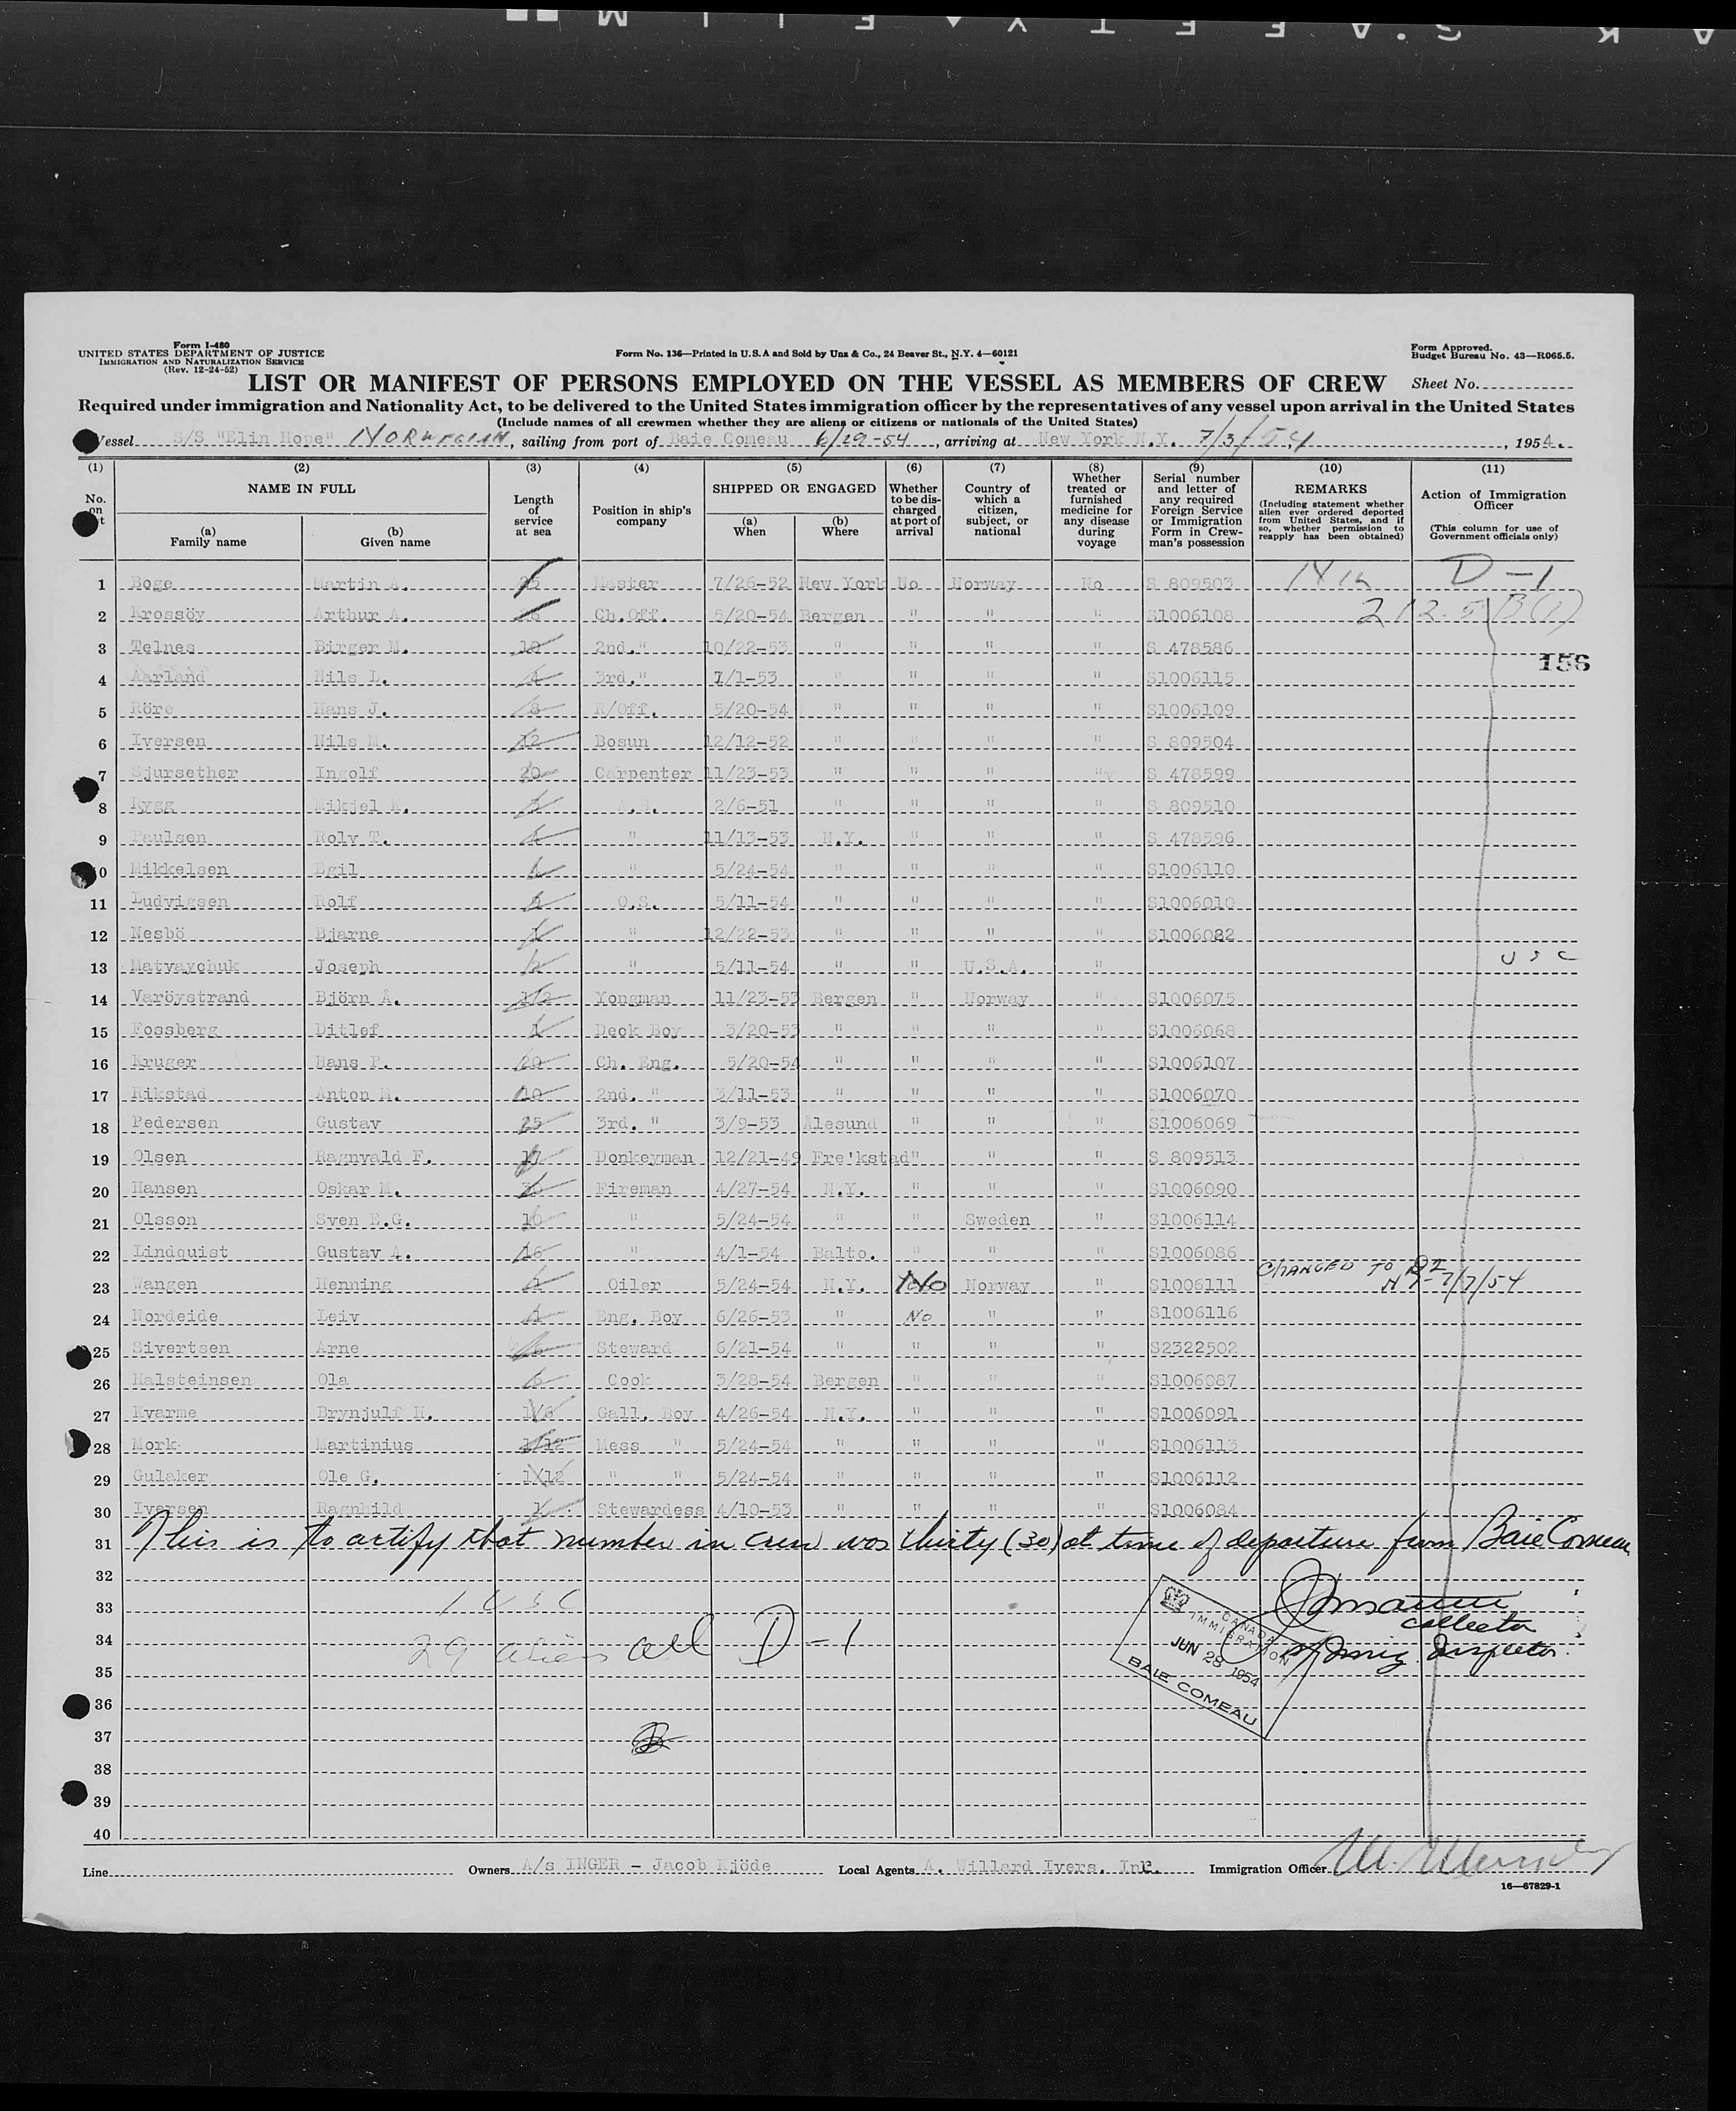 Form I-480
UNITED STATES DEPARTMENT OF JUSTICE
IMMIGRATION AND NATURALIZATION SERVICE
(Rev. 12-24-52)
Form No. 136—Printed in U.S.A and Sold by Unz & Co., 24 Beaver St., N.Y. 4—60121
Form Approved.
Budget Bureau No. 43—R065.5.
LIST OR MANIFEST OF PERSONS EMPLOYED ON THE VESSEL AS MEMBERS OF CREW
Sheet No.
Required under immigration and Nationality Act, to be delivered to the United States immigration officer by the representatives of any vessel upon arrival in the United States
(Include names of all crewmen whether they are aliens or citizens or nationals of the United States)
Vessel S/S "Elin Hope" NORWEGIAN, sailing from port of Baie Comeau 6/29-54, arriving at New York N.Y. 7/3/54, 1954.
(1) No. on
(2) NAME IN FULL (a) Family name (b) Given name
(3) Length of service at sea
(4) Position in ship's company
(5) SHIPPED OR ENGAGED (a) When (b) Where
(6) Whether to be discharged at port of arrival
(7) Country of which a citizen, subject, or national
(8) Whether treated or furnished medicine for any disease during voyage
(9) Serial number and letter of any required Foreign Service or Immigration Form in Crewman's possession
(10) REMARKS (Including statement whether alien ever ordered deported from United States, and if so, whether permission to reapply has been obtained)
(11) Action of Immigration Officer (This column for use of Government officials only)
1 Boge Martin A. 25 Master 7/26-52 New York No Norway No S 809503 D-1
2 Krossöy Arthur A. Ch.Off. 5/20-54 Bergen " " " S1006108 212.5 B(1)
3 Telnes Birger M. 10 2nd." 10/22-53 " " " " S 478586
156
4 Aarland Nils L. 4 3rd." 7/1-53 " " " " S1006115
5 Röre Hans J. 8 R/Off. 5/20-54 " " " " S1006109
6 Iversen Nils M. 12 Bosun 12/12-52 " " " " S 809504
7 Sjursether Ingolf 20 Carpenter 11/23-53 " " " " S 478599
8 Rygg Mikjel K. A.B. 2/6-51 " " " " S 809510
9 Paulsen Rolv T. " 11/13-53 N.Y. " " " S 478596
10 Mikkelsen Egil " 5/24-54 " " " " S1006110
11 Ludvigsen Rolf O.S. 5/11-54 " " " " S1006010
12 Nesbö Bjarne 1 " 12/22-53 " " " " S1006082
13 Matvaychuk Joseph 2 " 5/11-54 " " U.S.A. " USC
14 Varöystrand Björn Å. 1/2 Yongman 11/23-53 Bergen " Norway " S1006075
15 Fossberg Ditlef 1 Deck Boy 3/20-53 " " " " S1006068
16 Kruger Hans P. 20 Ch. Eng. 5/20-54 " " " " S1006107
17 Rikstad Anton M. 10 2nd. " 3/11-53 " " " " S1006070
18 Pedersen Gustav 25 3rd. " 3/9-53 Ålesund " " " S1006069
19 Olsen Ragnvald F. 17 Donkeyman 12/21-49 Fre'kstad " " " S 809513
20 Hansen Oskar M. 30 Fireman 4/27-54 N.Y. " " " S1006090
21 Olsson Sven E.G. 10 " 5/24-54 " " Sweden " S1006114
22 Lindquist Gustav A. 16 " 4/1-54 Balto. " " " S1006086
23 Wangen Henning 1 Oiler 5/24-54 N.Y. No Norway " S1006111 CHANGED TO D2 NY-7/7/54
24 Nordeide Leiv 1 Eng. Boy 6/26-53 " No " " S1006116
25 Sivertsen Arne Steward 6/21-54 " " " " S2322502
26 Halsteinsen Ola 6 Cook 3/28-54 Bergen " " " S1006087
27 Kvarme Brynjulf H. 1/6 Gall. Boy 4/26-54 N.Y. " " " S1006091
28 Mork Martinius 1/12 Mess " 5/24-54 " " " " S1006113
29 Gulaker Ole G. 1/12 " " 5/24-54 " " " " S1006112
30 Iversen Ragnhild 1 Stewardess 4/10-53 " " " " S1006084
31 This is to certify that number in crew was thirty (30) at time of departure from Baie Comeau
32
33 1 USC
collector
34 29 aliens all D-1
Immig Inspector.
CANADA
IMMIGRATION
JUN 28 1954
BAIE COMEAU
35
36
37
38
39
40
Line Owners A/s INGER - Jacob Kjöde Local Agents A. Willard Ivers. Inc. Immigration Officer
16—67829-1